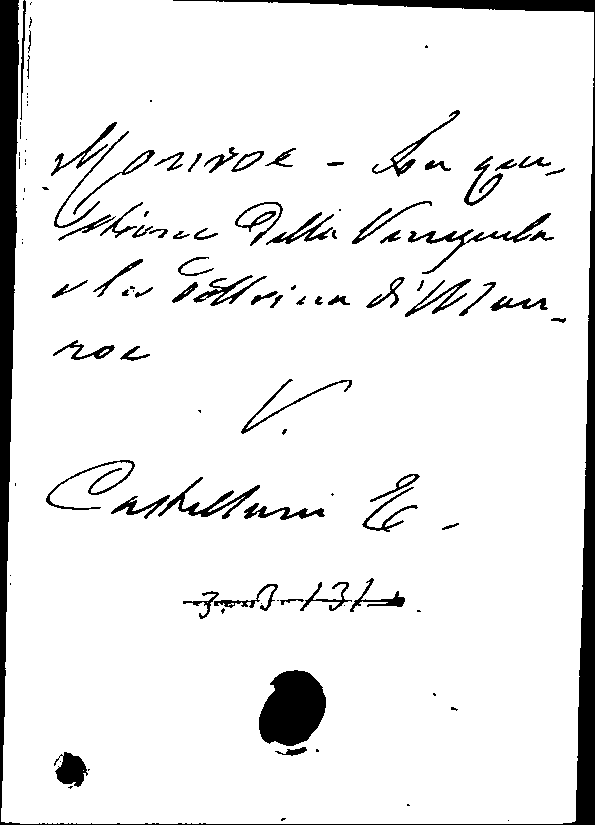 Monroe - La que-
stione della Venezuela
e la dottrina di Mon-
roe
V.
Castellani E.
3. B. 131